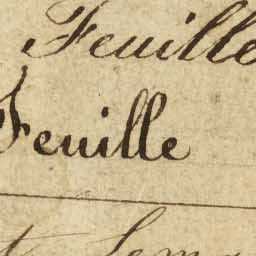 Feuille
Feuille